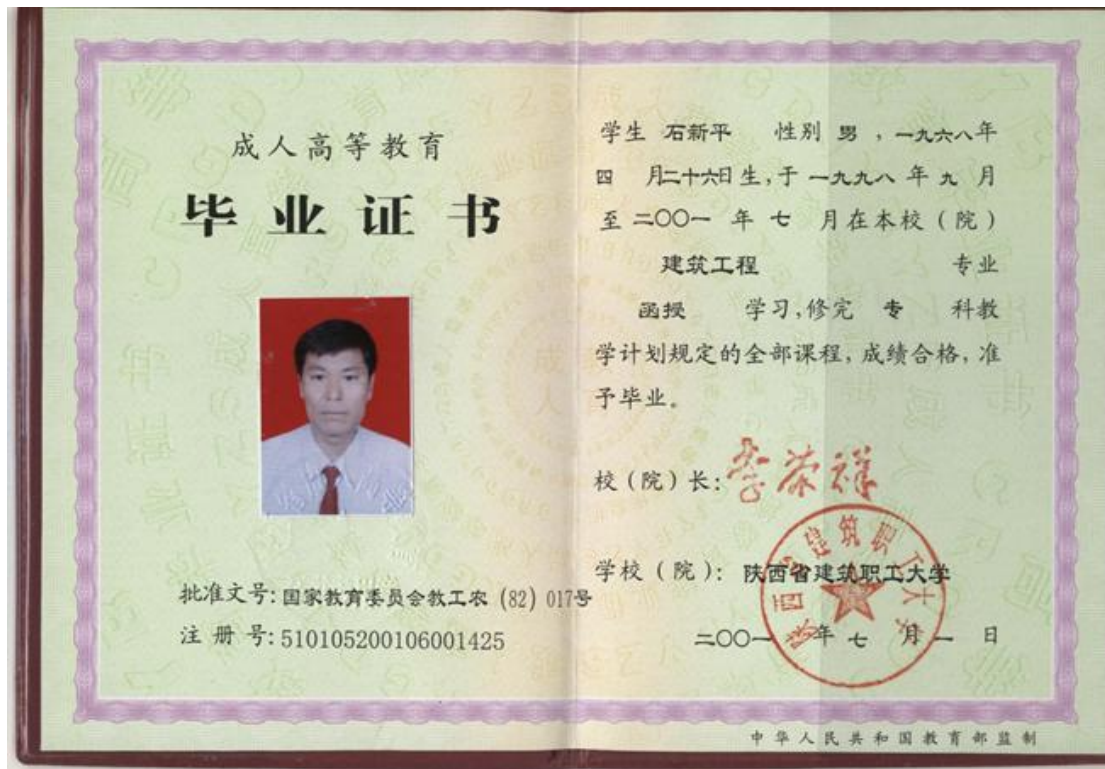 成人高等教育
毕业证书
批准文号:国家教育委员会教工农(82)017号
注册号:510105200106001425
学生 石新平 性别 男,一九六八年
四 月二十六日生,于一九九八年九月
至二〇〇一年七月在本校(院)
建筑工程 专业
函授 学习,修完 专 科教
学计划规定的全部课程,成绩合格,准
予毕业。
校(院)长:李荣祥
学校(院):陕西省建筑职工大学
陕西省建筑职工大学
二〇〇一年七月一日
中华人民共和国教育部监制